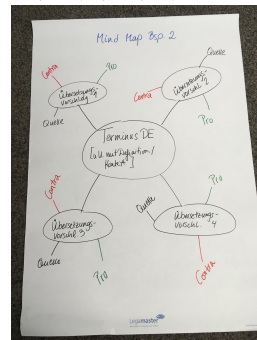 Mind Map Bsp. 2
Contra
Pro
Übersetzungs-
vorschlag 1
Quelle
Quelle
Übersetzungs-
vorschl. 2
Contra
Pro
Terminus DE
[u.U. mit Definition/
Kontext]
Contra
Übersetzungs-
vorschl. 3
Quelle
Pro
Quelle
Pro
Übersetzungs-
vorschl. 4
Contra
Legamaster